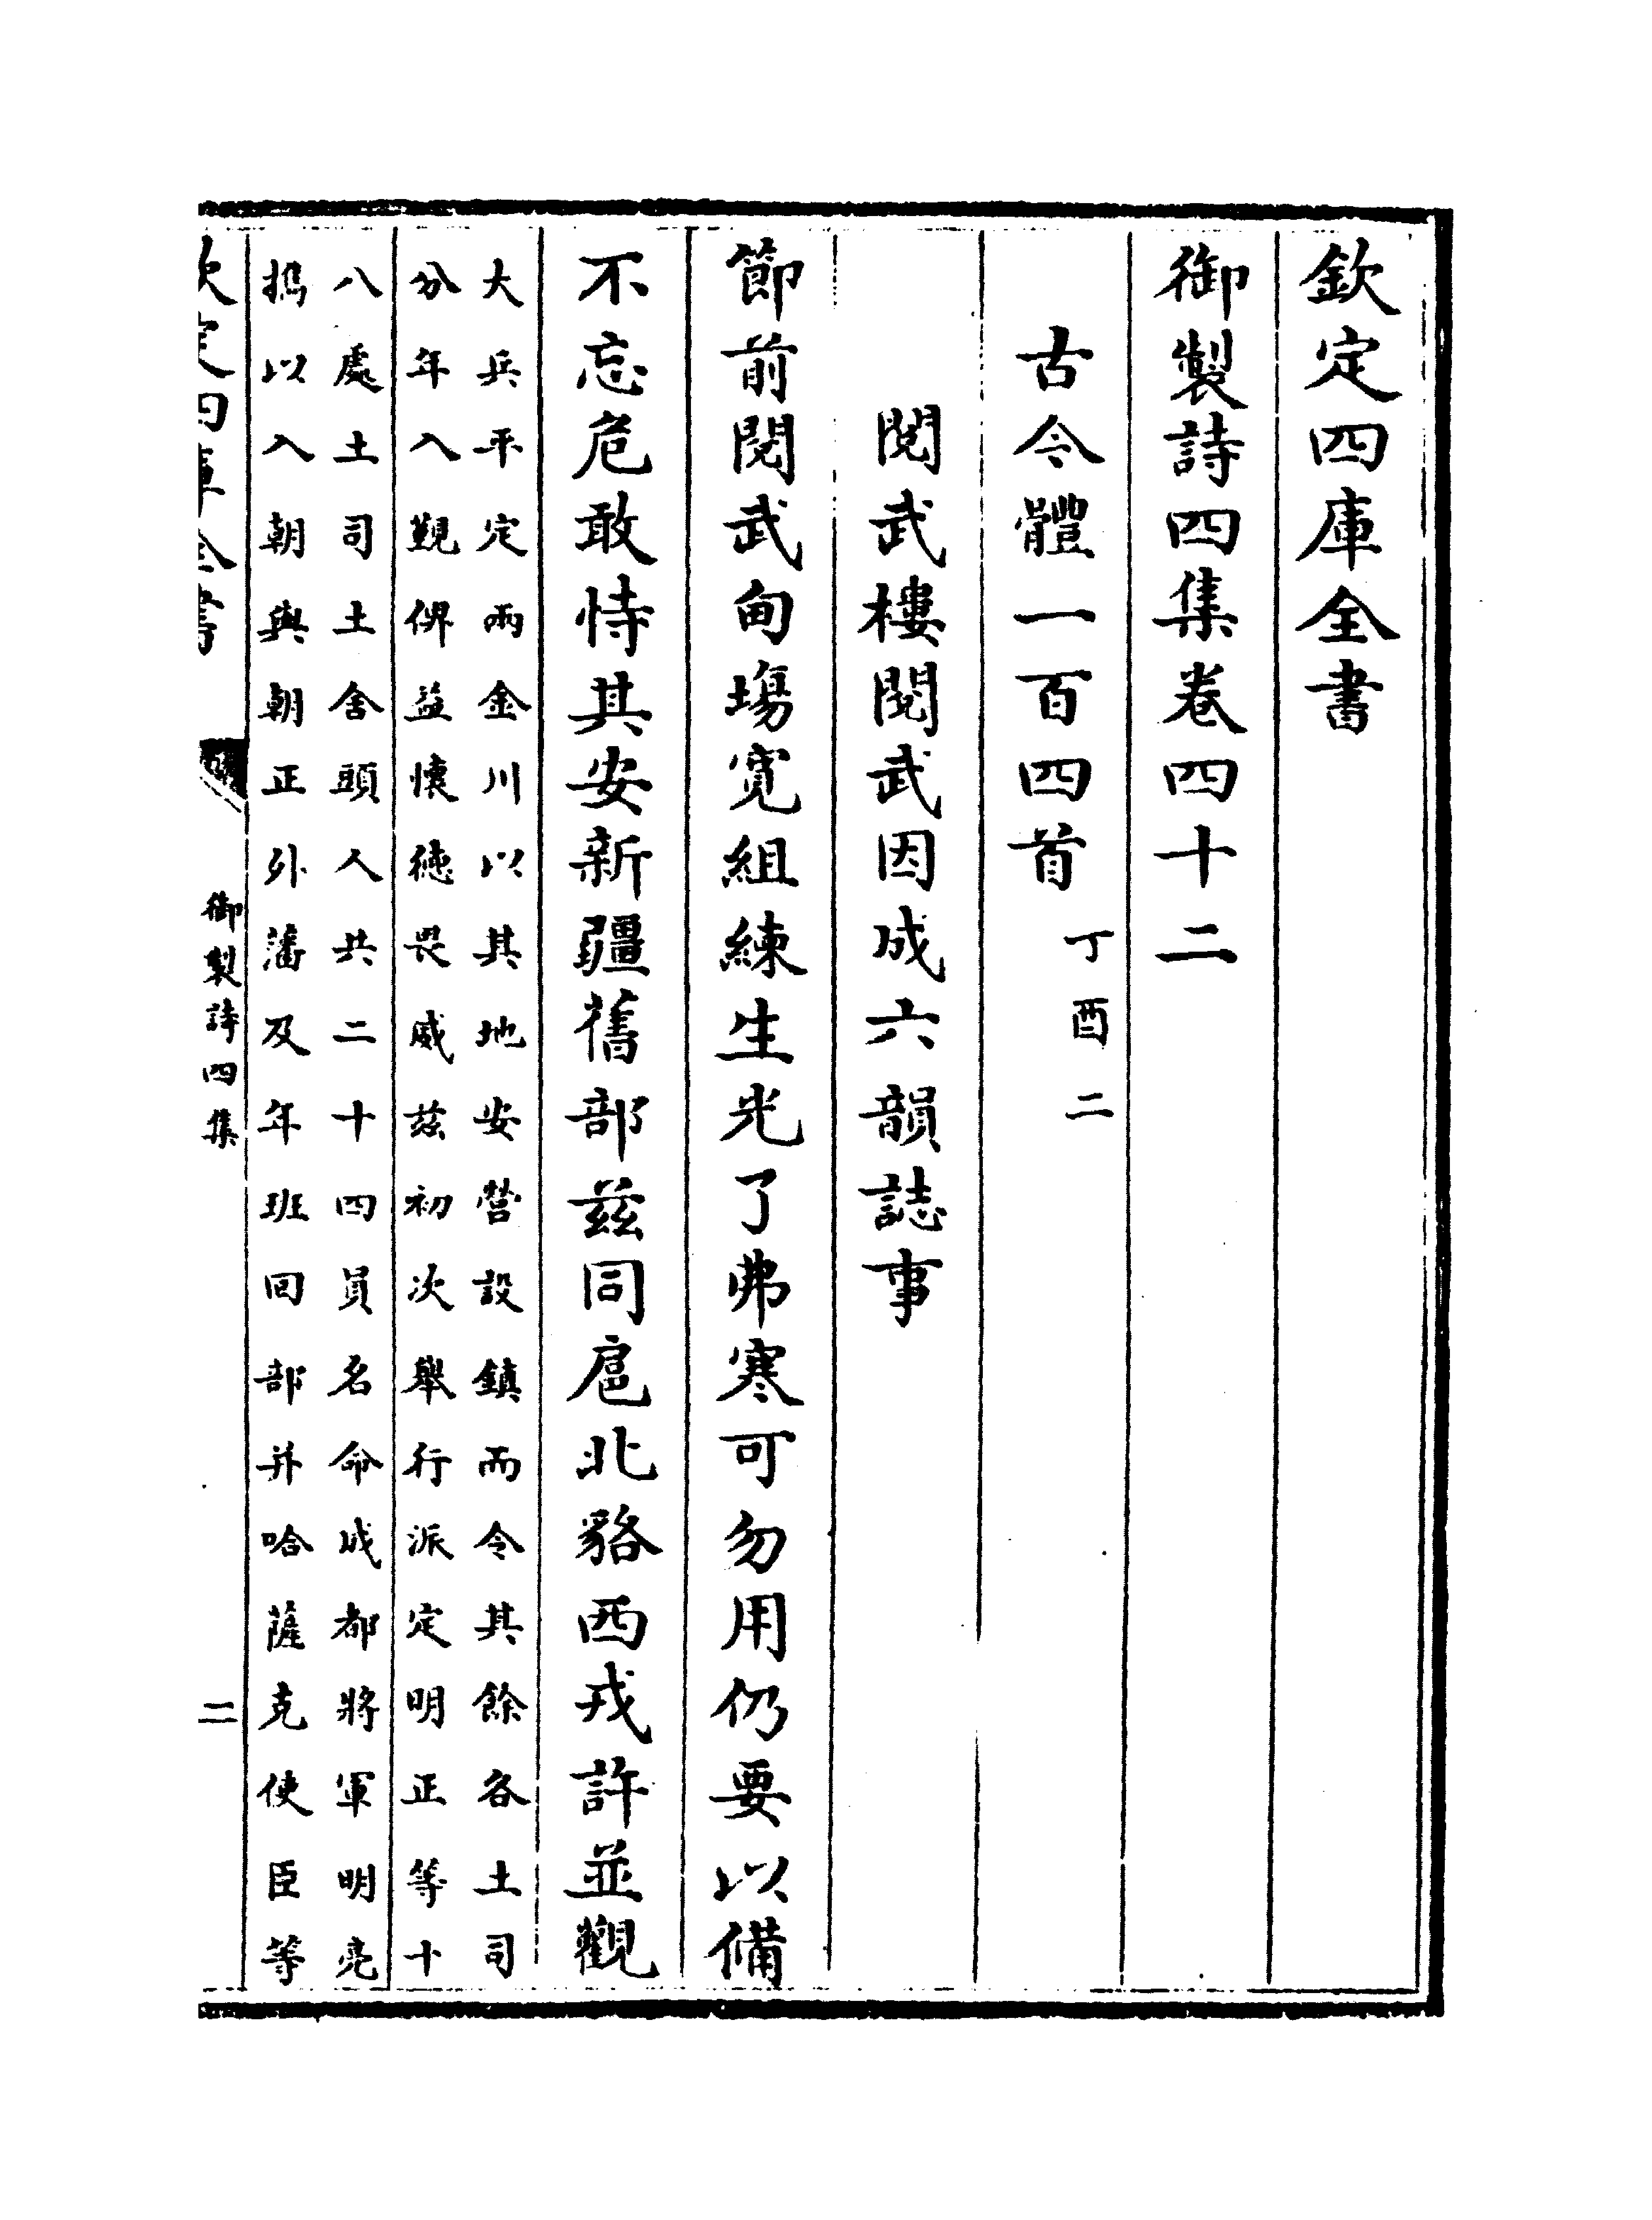 欽定四庫全書
御製詩四集卷四十二
古今體一百四首丁酉二
閲武樓閲武因成六韻誌事
節前閲武甸塲寛組練生光了弗寒可勿用仍要以備
不忘危敢恃其安新疆舊部兹同扈北貉西戎許並觀
大兵平定兩金川以其地安營設鎮而令其餘各土司
分年入覲俾益懐徳畏威兹初次舉行派定明正等十
八處土司土舍頭人共二十四員名命成都將軍明亮
擕以入朝與朝正外藩及年班回部并哈薩克使臣等
欽定四庫全書
御製詩四集
二